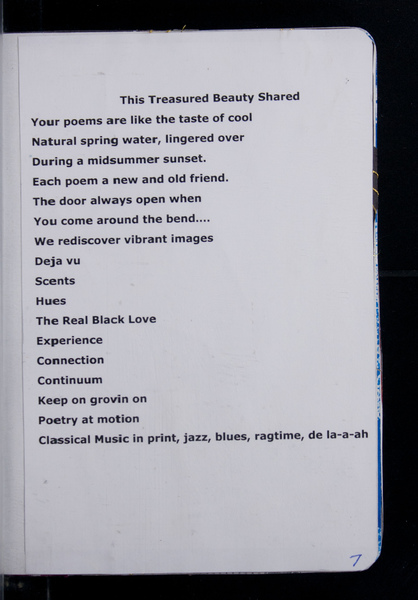 This Treasured Beauty Shared
Your poems are like the taste of cool
Natural spring water, lingered over
During a midsummer sunset.
Each poem a new and old friend.
The door always open when
You come around the bend....
We rediscover vibrant images
Deja vu
Scents
Hues
The Real Black Love
Experience
Connection
Continuum
Keep on grovin on
Poetry at motion
Classical Music in print, jazz, blues, ragtime, de la-a-ah
7